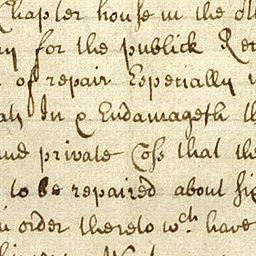 Chapter house in the old
for the publick Rec
of repair Especially
In & Endamageth th
and private Coss that the
to be repaired about
order thereto wch have